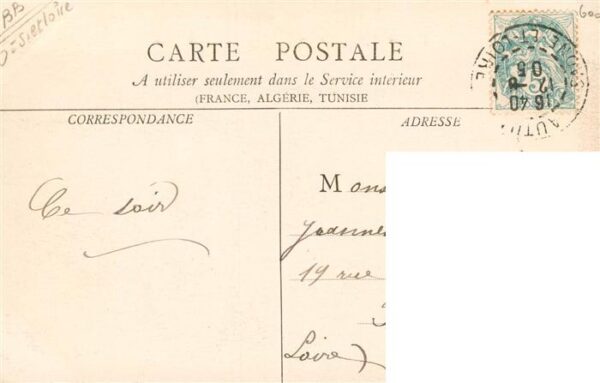 BB
CARTE POSTALE
A utiliser seulement dans le Service intérieur
(FRANCE, ALGÉRIE, TUNISIE
CORRESPONDANCE
ADRESSE
Ce soir
Mons
Joannes
19 rue
Loire)
16 40
12 -8
05
SAONE-ET-LOIRE